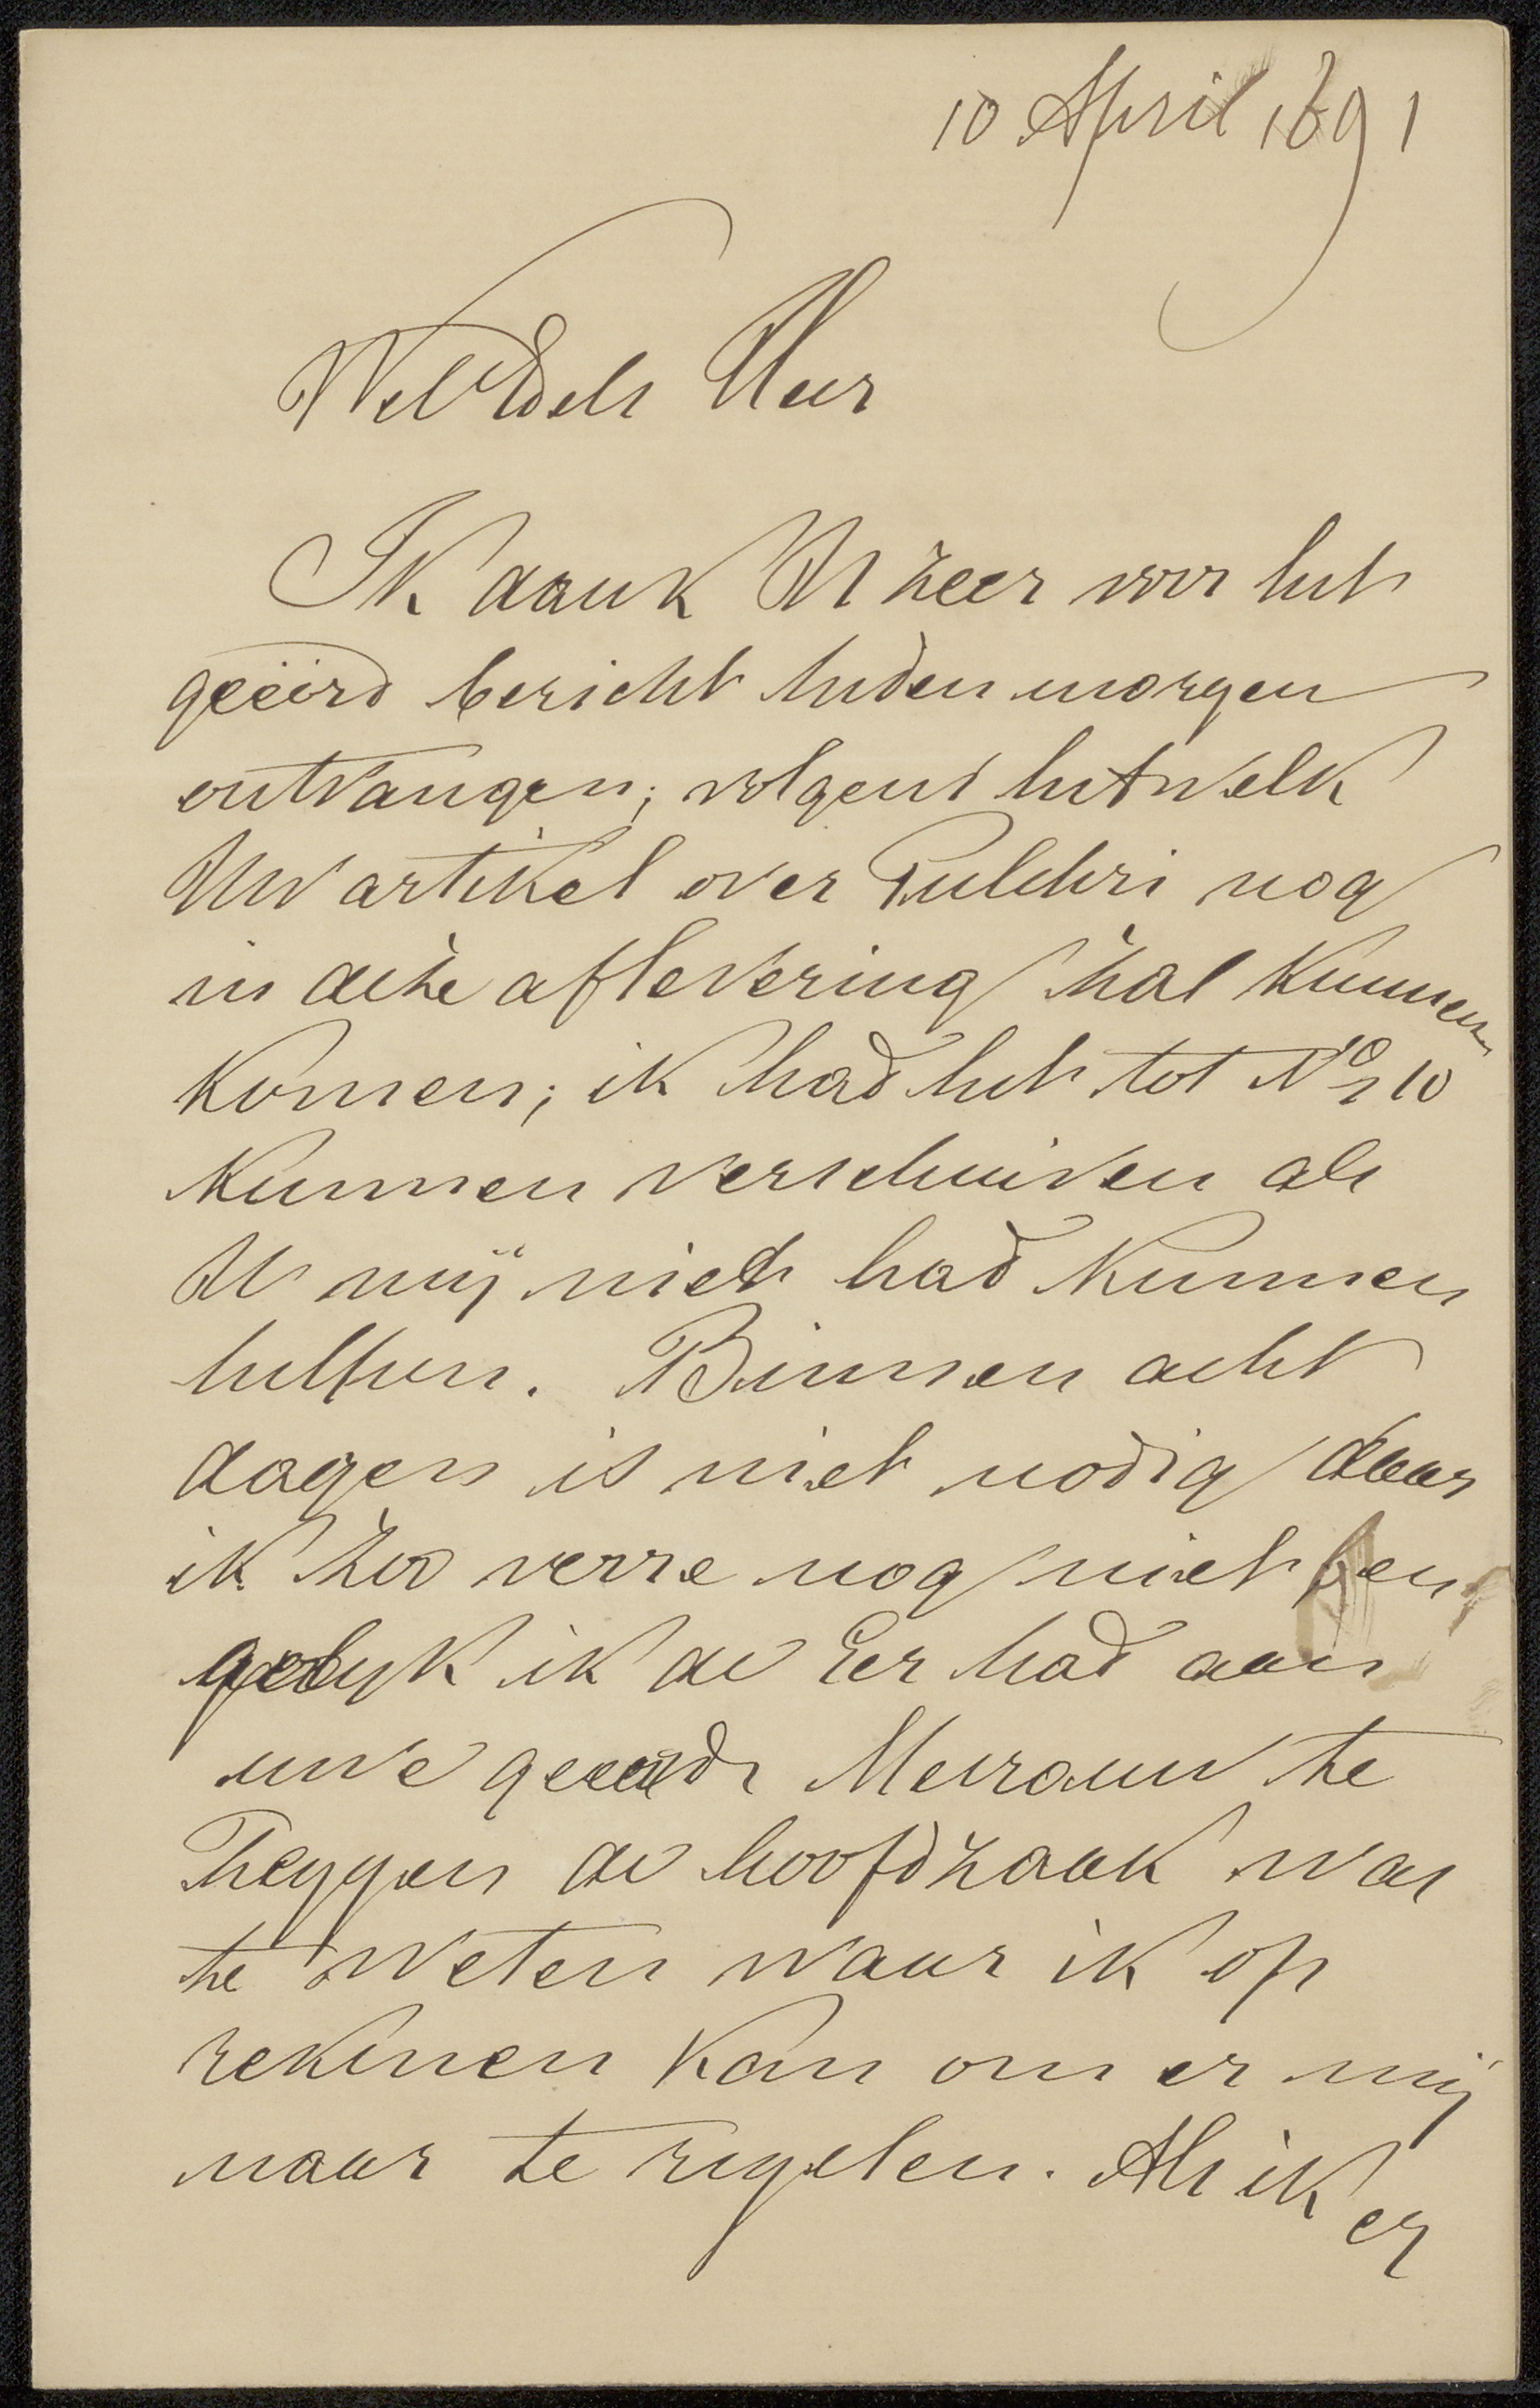 10 April 1891
WelEdele Heer
Ik dank U zeer voor het
geëerd bericht heden morgen
ontvangen; volgens hetwelk
Uw artikel over Pulchri nog
in deze aflevering zal kunnen
komen; ik had het tot No 10
kunnen verschuiven als
U mij niet had kunnen
helpen. Binnen acht
dagen is niet nodig daar
ik zoo verre nog niet ben
gelyk ik de Eer had aan
uwe geeerde Mevrouw te
zeggen de hoofdzaak was
te weten waar ik op
rekenen kan om er mij
naar te regelen. Als ik
er